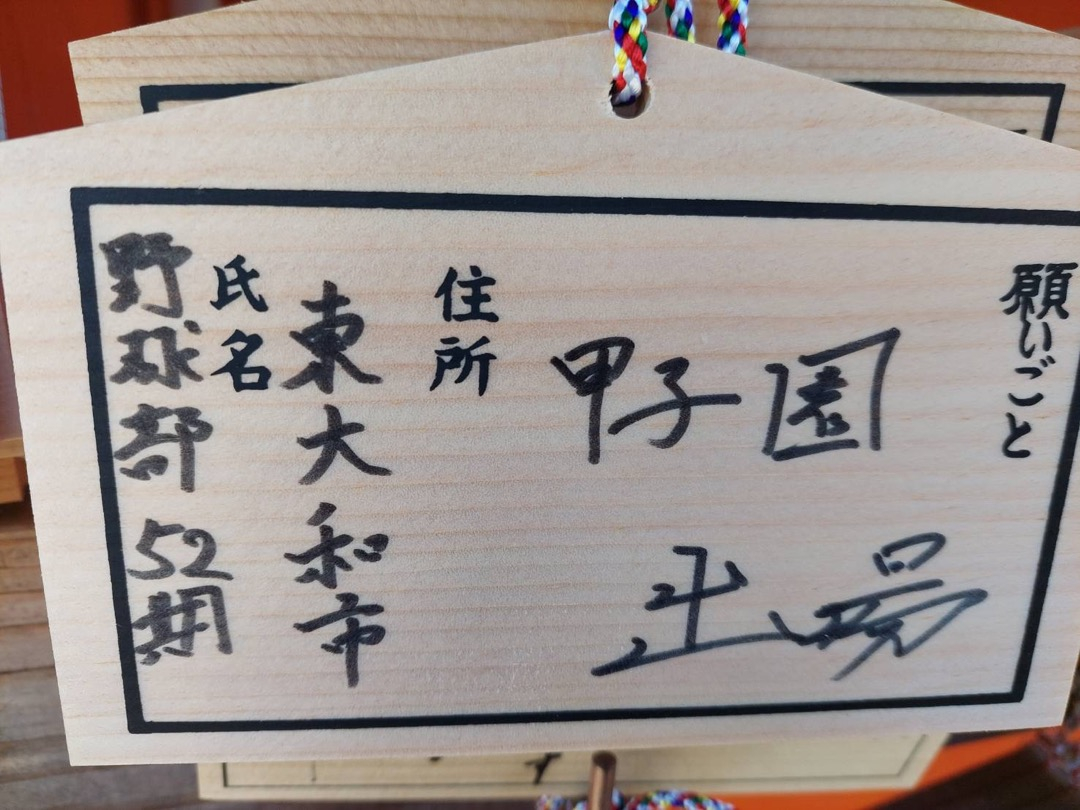 願いごと
甲子園
出場
住所
東大和市
氏名
野球部 52期